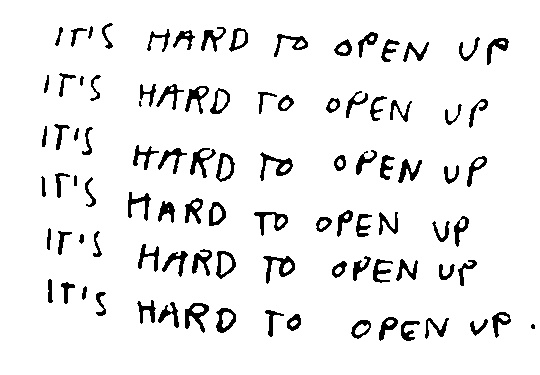 IT'S HARD TO OPEN UP
IT'S HARD TO OPEN UP
IT'S HARD TO OPEN UP
IT'S HARD TO OPEN UP
IT'S HARD TO OPEN UP
IT'S HARD TO OPEN UP.